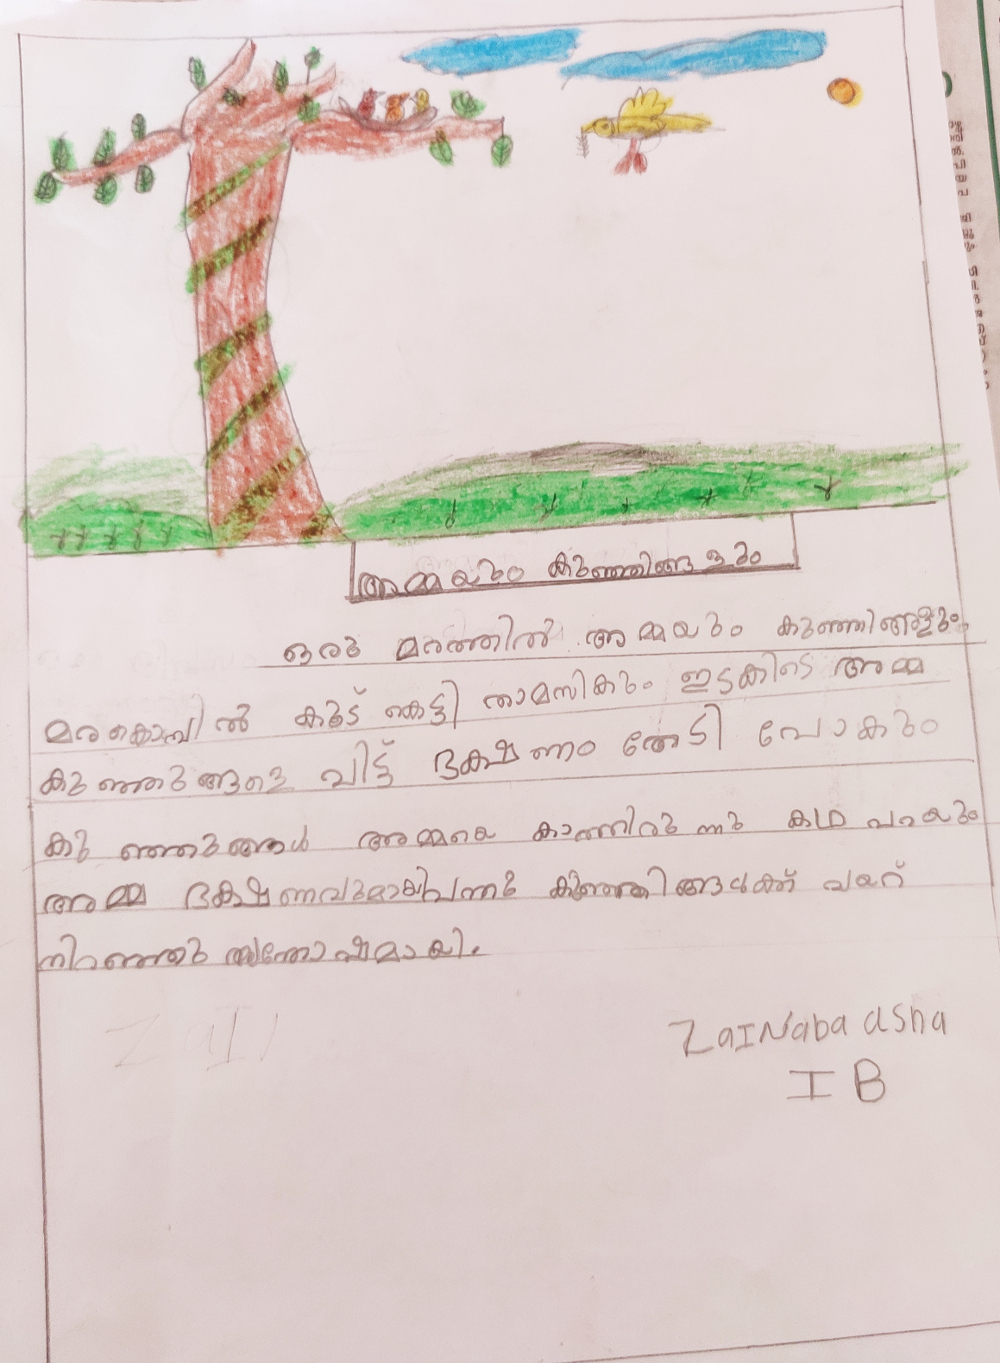 അമ്മയും കുഞ്ഞിങ്ങളും
ഒരു മരത്തിൽ അമ്മയും കുഞ്ഞിങ്ങളും
മരകൊമ്പിൽ കൂട് കെട്ടി താമസികും ഇടകിടെ അമ്മ
കുഞ്ഞുങ്ങളെ വിട്ട് ഭക്ഷണം തേടി പോകും
കുഞ്ഞുങ്ങൾ അമ്മയെ കാത്തിരുന്നു കഥ പറയും
അമ്മ ഭക്ഷണവുമായിവന്നു കുഞ്ഞിങ്ങൾക്ക് വയറ്
നിറഞ്ഞു സന്തോഷമായി.
ZaINaba asha
I B